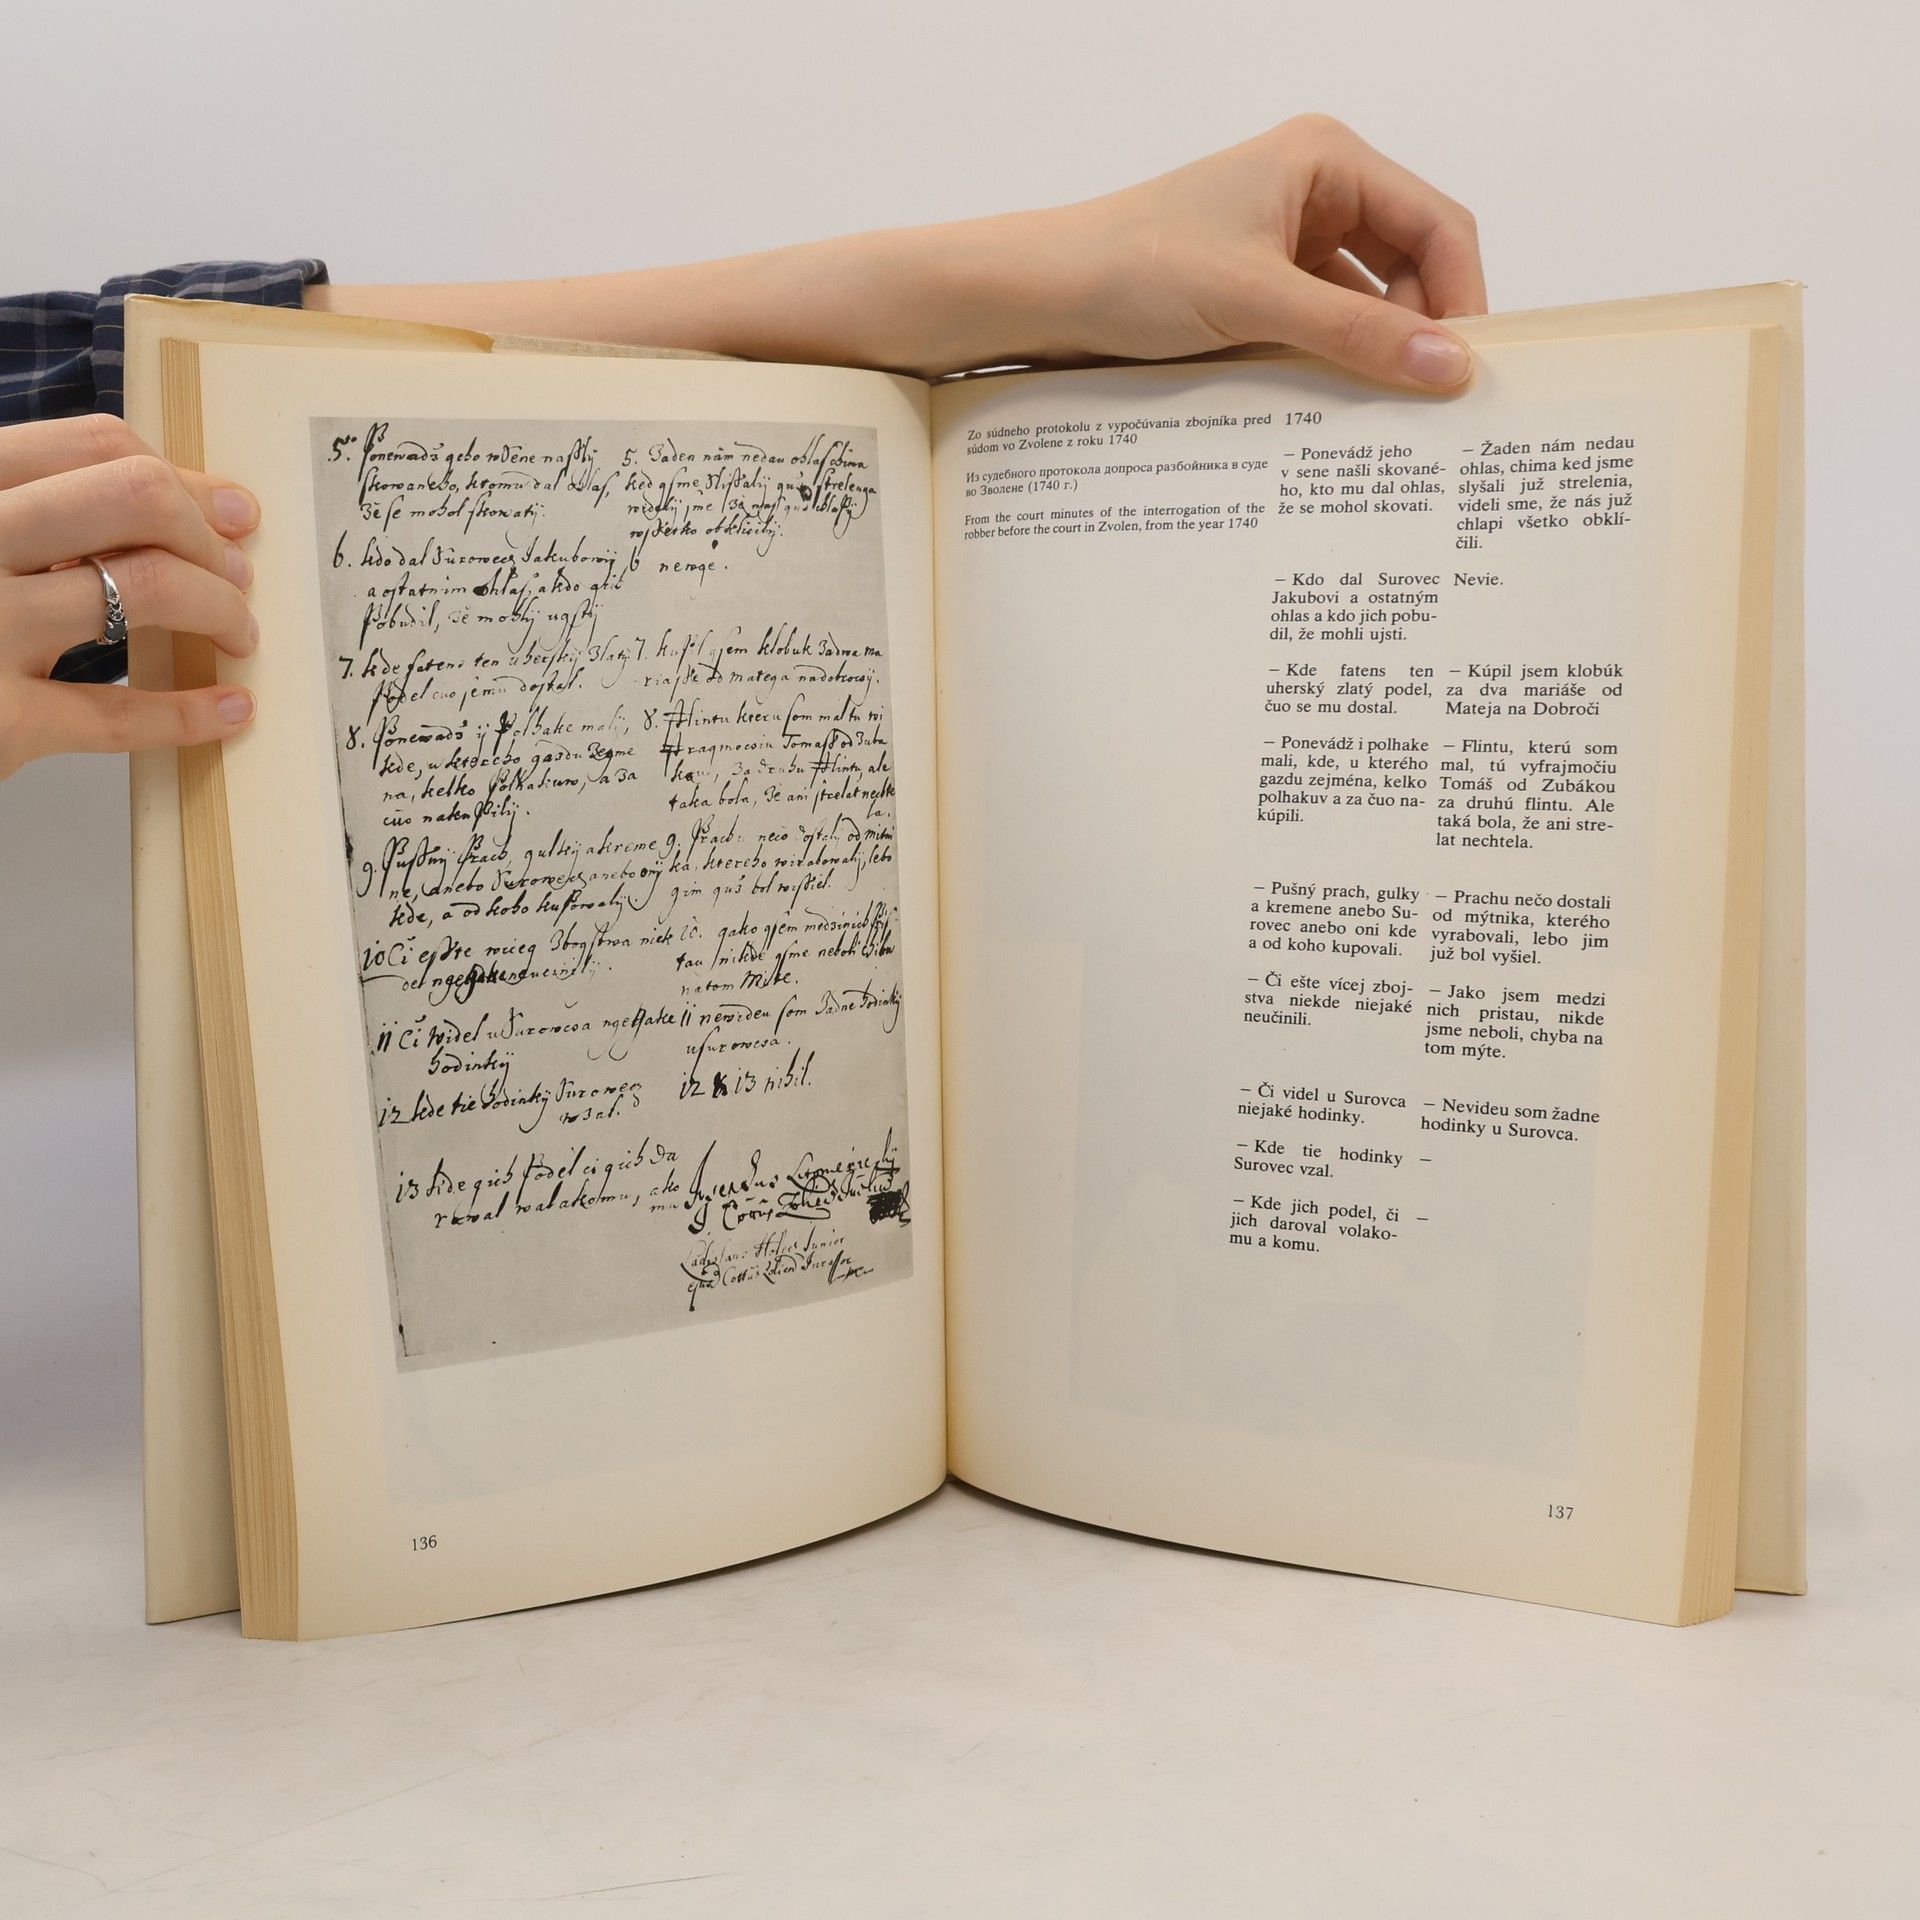 5. Ponewadž geho w Sene nassly
skowaneho, kromu dal ohlas,
že se mohol skowaty.
5. Žaden nám nedau ohlas chima
ked gsme slissaly guž strelenya
widely sme že nas guž chlapy
wssetko obklicily.
6. kdo dal Surowecz Jakubowy
a ostatnim ohlas, a kdo gich
Pobudil, že mohly ugsty
6 newge.
7. kde fatens ten uhersky Zlaty
Podel cuo jemu dostal.
7. kupil gsem klobuk Zadwa ma
riasse od Matega nadobrocy.
8. Ponewadž y Polhake maly,
kde, u ktereho gazdu Zegme
na, kelko Polhakuw, a za
cuo nakupily.
8. Flintu kteru som mal tu wi
fragmocsiu Tomass od Zuba
kou, Za druhu Flintu, ale
taka bola, že ani strelat nechte
la.
9. Pussny Prach, gulky a kreme
ne, anebo Surowecz anebo ony
kde, a od koho kupowaly.
9. Prachu neco dostaly od mitni
ka, ktereho wirabowaly, lebo
gim guž bol wissiel.
10 Či esste wiceg Zbogstwa niek
de ngegake neucinily.
10. gako gsem medzinich Pris
tau nikde gsme neboli chiba
na tom Mite.
11 Či widel u Surowcsa ngegake
hodinky
11 newideu som Žadne hodinky
u Surowcsa.
12 kde tie hodinky Surowecz
wzal.
12 & 13 nihil.
13 kde gich Podel ci gich da
rowal walakomu, ako
mu
Ladislaus Junior
Zo súdneho protokolu z vypočúvania zbojníka pred
súdom vo Zvolene z roku 1740
Из судебного протокола допроса разбойника в суде
во Зволене (1740 г.)
From the court minutes of the interrogation of the
robber before the court in Zvolen, from the year 1740
1740
– Ponevádž jeho
v sene našli skované-
ho, kto mu dal ohlas,
že se mohol skovati.
– Žaden nám nedau
ohlas, chima ked jsme
slyšali juž strelenia,
videli sme, že nás juž
chlapi všetko obklí-
čili.
– Kdo dal Surovec
Jakubovi a ostatným
ohlas a kdo jich pobu-
dil, že mohli ujsti.
Nevie.
– Kde fatens ten
uherský zlatý podel,
čuo se mu dostal.
– Kúpil jsem klobúk
za dva mariáše od
Mateja na Dobroči
– Ponevádž i polhake
mali, kde, u kterého
gazdu zejména, kelko
polhakuv a za čuo na-
kúpili.
– Flintu, kterú som
mal, tú vyfrajmočiu
Tomáš od Zubákou
za druhú flintu. Ale
taká bola, že ani stre-
lat nechtela.
– Pušný prach, gulky
a kremene anebo Su-
rovec anebo oni kde
a od koho kupovali.
– Prachu nečo dostali
od mýtnika, kterého
vyrabovali, lebo jim
již bol vyšiel.
– Či ešte vícej zboj-
stva niekde niejaké
neučinili.
– Jako jsem medzi
nich pristau, nikde
jsme neboli, chyba na
tom mýte.
– Či videl u Surovca
niejaké hodinky.
– Nevideu som žadne
hodinky u Surovca.
– Kde tie hodinky
Surovec vzal.
–
– Kde jich podel, či
jich daroval volako-
mu a komu.
–
136
137